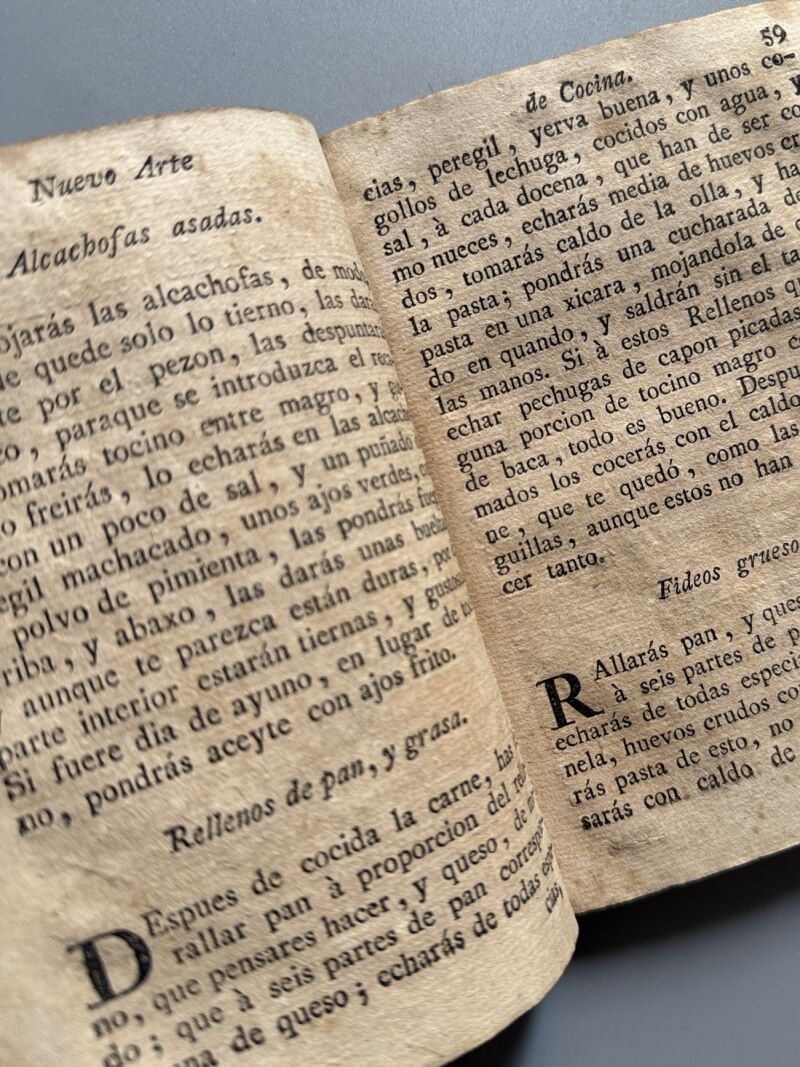 Nuevo Arte
Alcachofas asadas.
ojarás las alcachofas, de modo
quede solo lo tierno, las dará
te por el pezon, las despuntará
co, paraque se introduzca el reca
omarás tocino entre magro, y
freirás, lo echarás en las alcach
con un poco de sal, y un puñado
egil machacado, unos ajos verdes,
polvo de pimienta, las pondrás
riba, y abaxo, las darás unas
aunque te parezca están duras, por
parte interior estarán tiernas, y
Si fuere dia de ayuno, en lugar de
no, pondrás aceyte con ajos frito.
Rellenos de pan, y grasa.
DEspues de cocida la carne, has
rallar pan à proporcion del
no, que pensares hacer, y queso, de
do; que à seis partes de pan correspon
na de queso; echarás de todas espe
cias,
de Cocina. 59
cias, peregil, yerva buena, y unos co-
gollos de lechuga, cocidos con agua, y
sal, à cada docena, que han de ser co
mo nueces, echarás media de huevos cr
dos, tomarás caldo de la olla, y ha
la pasta; pondrás una cucharada de
pasta en una xicara, mojandola de
do en quando, y saldrán sin el ta
las manos. Si à estos Rellenos qu
echar pechugas de capon picadas
guna porcion de tocino magro c
de baca, todo es bueno. Despu
mados los cocerás con el caldo
ne, que te quedó, como las
guillas, aunque estos no han
cer tanto.
Fideos grueso
RAllarás pan, y ques
à seis partes de p
echarás de todas especi
nela, huevos crudos co
rás pasta de esto, no
sarás con caldo de